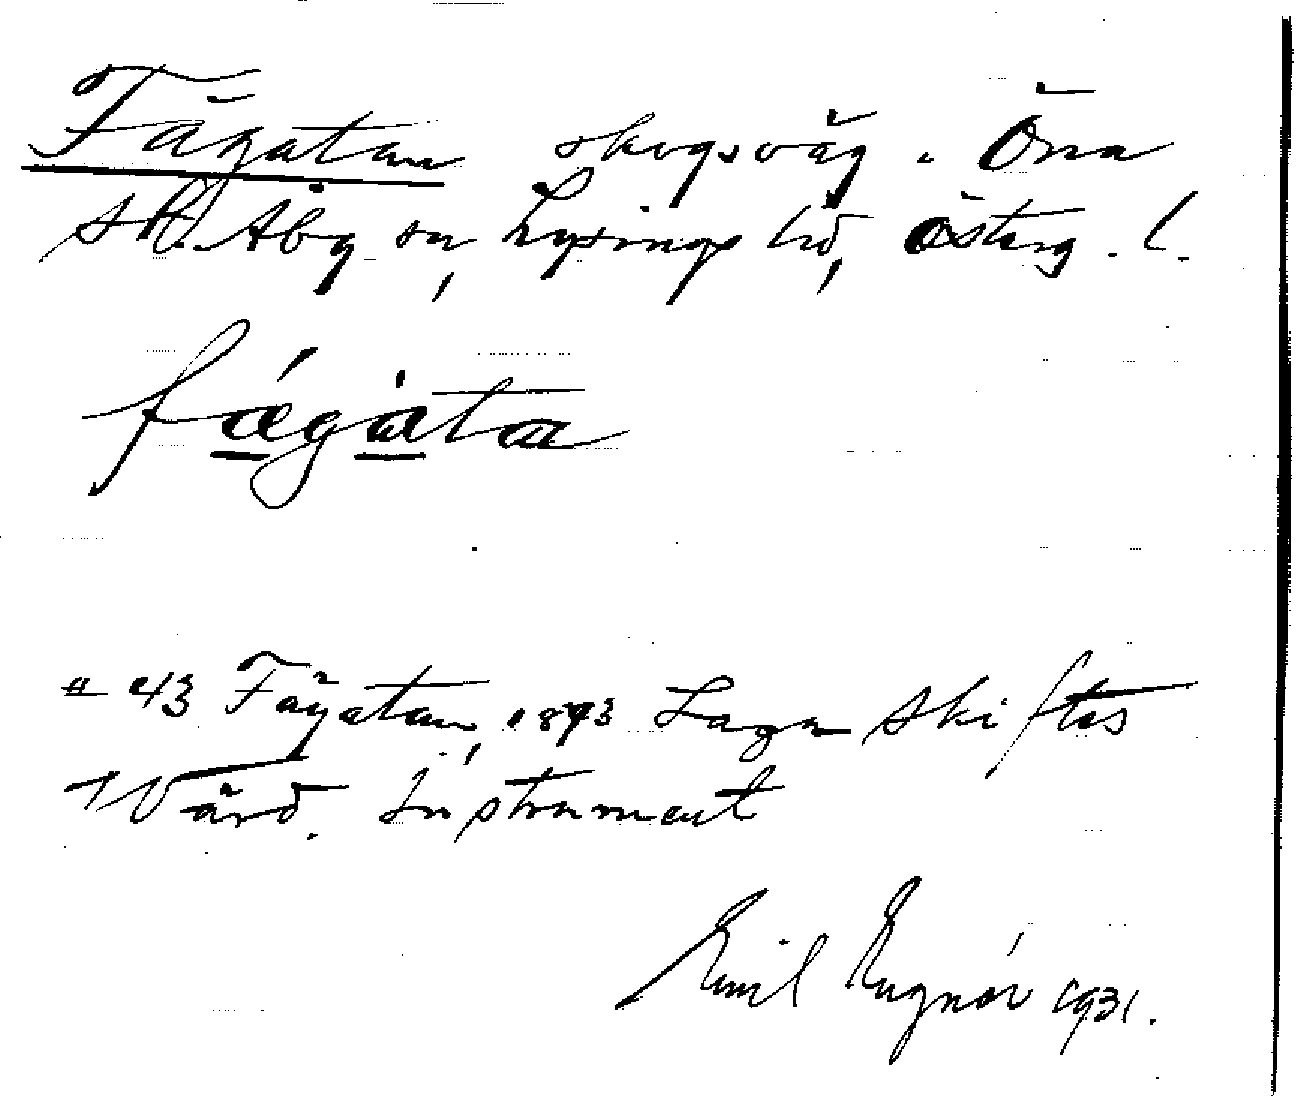 Fägatan skogsväg. Öna
sk. Åby sn, Lysings hd, Österg. l.
fǽgàta
# 43 Fägatan, 1893 Laga Skiftes
Värd. Instrument
Emil Eugnér 1931.